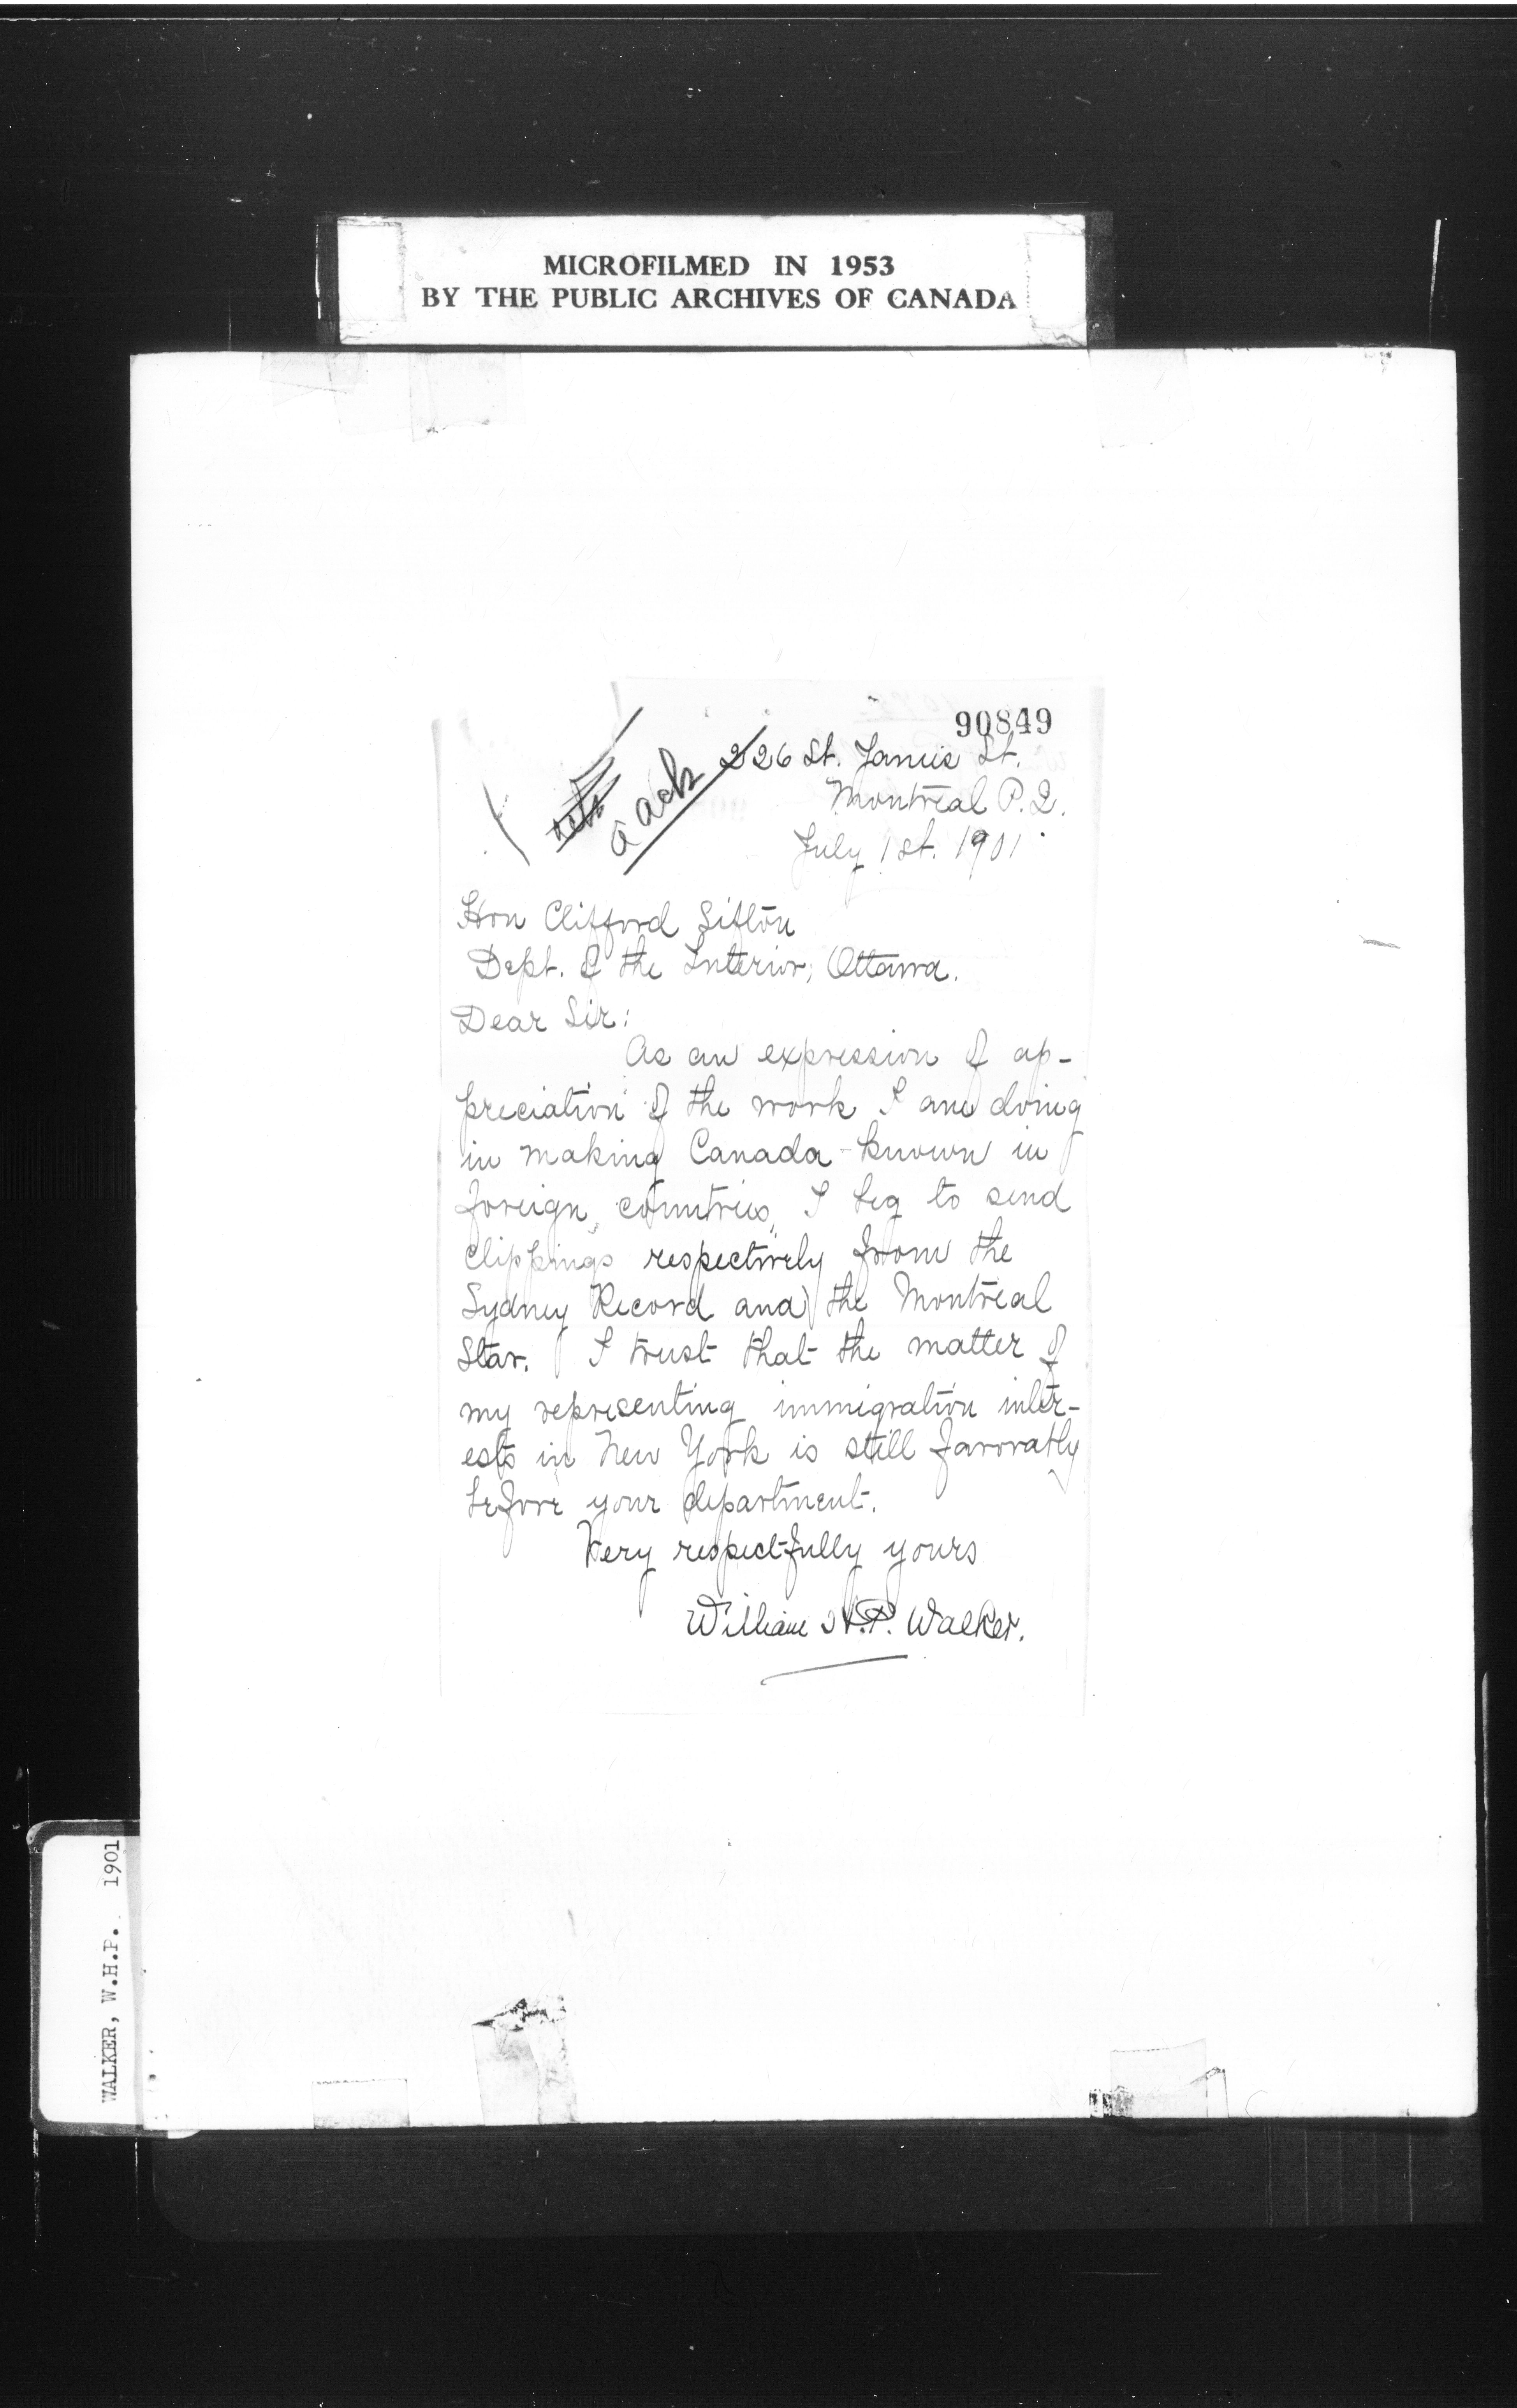 MICROFILMED IN 1953
BY THE PUBLIC ARCHIVES OF CANADA
90849
ack
226 St. James St.
Montreal P.Q.
July 1st. 1901
Hon Clifford Sifton
Dept. of the Interior, Ottawa.
Dear Sir:
As an expression of ap-
preciation of the work I am doing
in making Canada known in
foreign countries, I beg to send
clippings respectively from the
Sydney Record and the Montreal
Star. I trust that the matter of
my representing immigration inter-
ests in New York is still favorably
before your department.
Very respectfully yours
William H.P. Walker.
WALKER, W.H.P. 1901